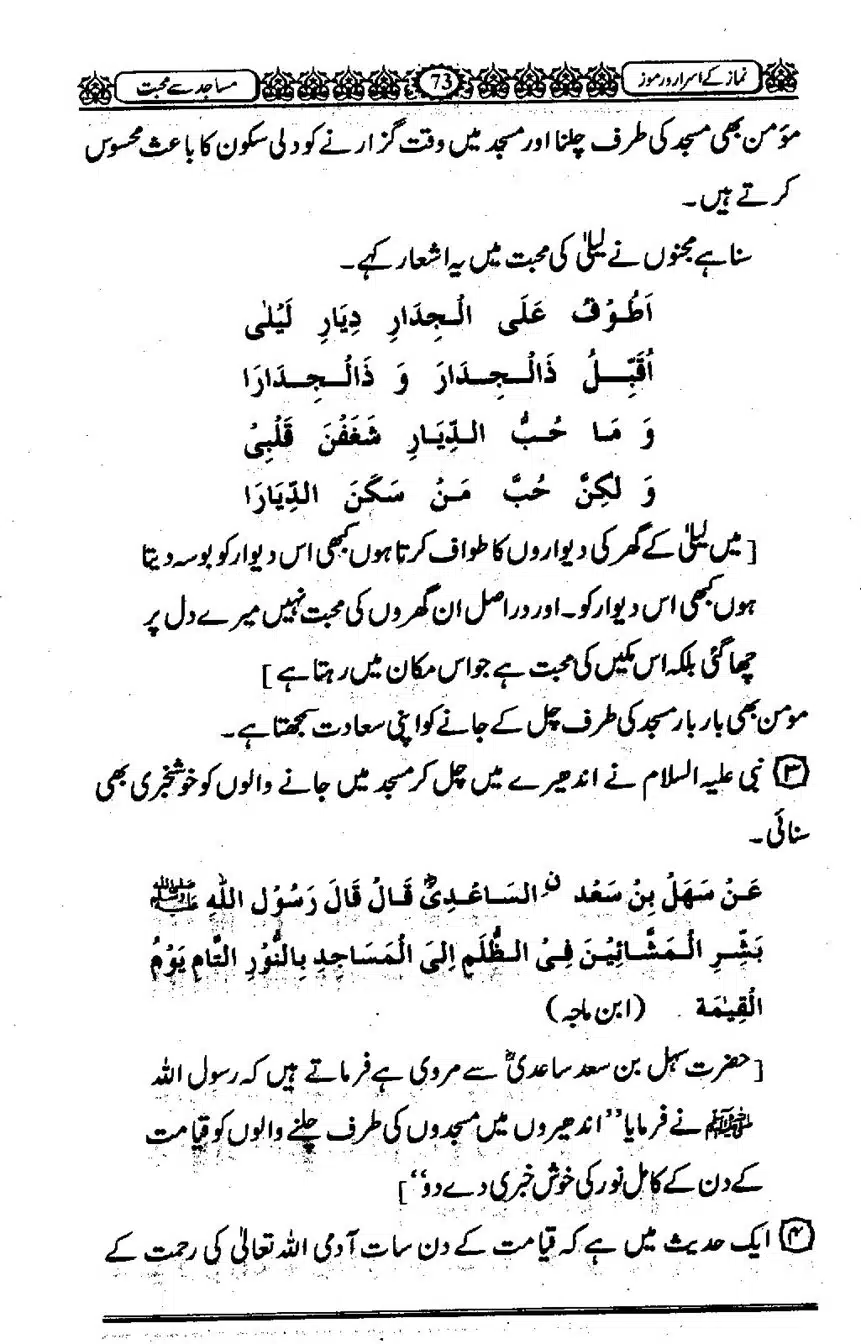 نماز کے اسرار و رموز 73 مساجد سے محبت
مؤمن بھی مسجد کی طرف چلنا اور مسجد میں وقت گزارنے کو دلی سکون کا باعث محسوس
کرتے ہیں۔
سنا ہے مجنوں نے لیلیٰ کی محبت میں یہ اشعار کہے۔
اَطُوْفُ عَلَى الْجِدَارِ دِيَارِ لَيْلٰى
اُقَبِّلُ ذَالْجِدَارَ وَ ذَالْجِدَارَا
وَ مَا حُبُّ الدِّيَارِ شَغَفْنَ قَلْبِىْ
وَ لٰكِنَّ حُبَّ مَنْ سَكَنَ الدِّيَارَا
[میں لیلیٰ کے گھر کی دیواروں کا طواف کرتا ہوں کبھی اس دیوار کو بوسہ دیتا
ہوں کبھی اس دیوار کو۔ اور دراصل ان گھروں کی محبت نہیں میرے دل پر
چھا گئی بلکہ اس مکیں کی محبت ہے جو اس مکان میں رہتا ہے]
مومن بھی بار بار مسجد کی طرف چل کے جانے کو اپنی سعادت سمجھتا ہے۔
(۳) نبی علیہ السلام نے اندھیرے میں چل کر مسجد میں جانے والوں کو خوشخبری بھی
سنائی۔
عَنْ سَهَلْ بِنْ سَعْد نِ السَاعْدِىْؓ قَالْ قَالَ رَسُوْل اللهِ ﷺ
بَشِّرِ الْمَشَّائِيْنَ فِىْ الظُّلَمِ اِلىَ الْمَسَاجِدِ بِالنُّوْرِ التَّامِ يَوْمُ
الْقِيٰمَة (ابن ماجہ)
[حضرت سہل بن سعد ساعدیؓ سے مروی ہے فرماتے ہیں کہ رسول اللہ
ﷺ نے فرمایا ’’اندھیروں میں مسجدوں کی طرف چلنے والوں کو قیامت
کے دن کے کامل نور کی خوش خبری دے دو‘‘]
(۴) ایک حدیث میں ہے کہ قیامت کے دن سات آدمی اللہ تعالیٰ کی رحمت کے